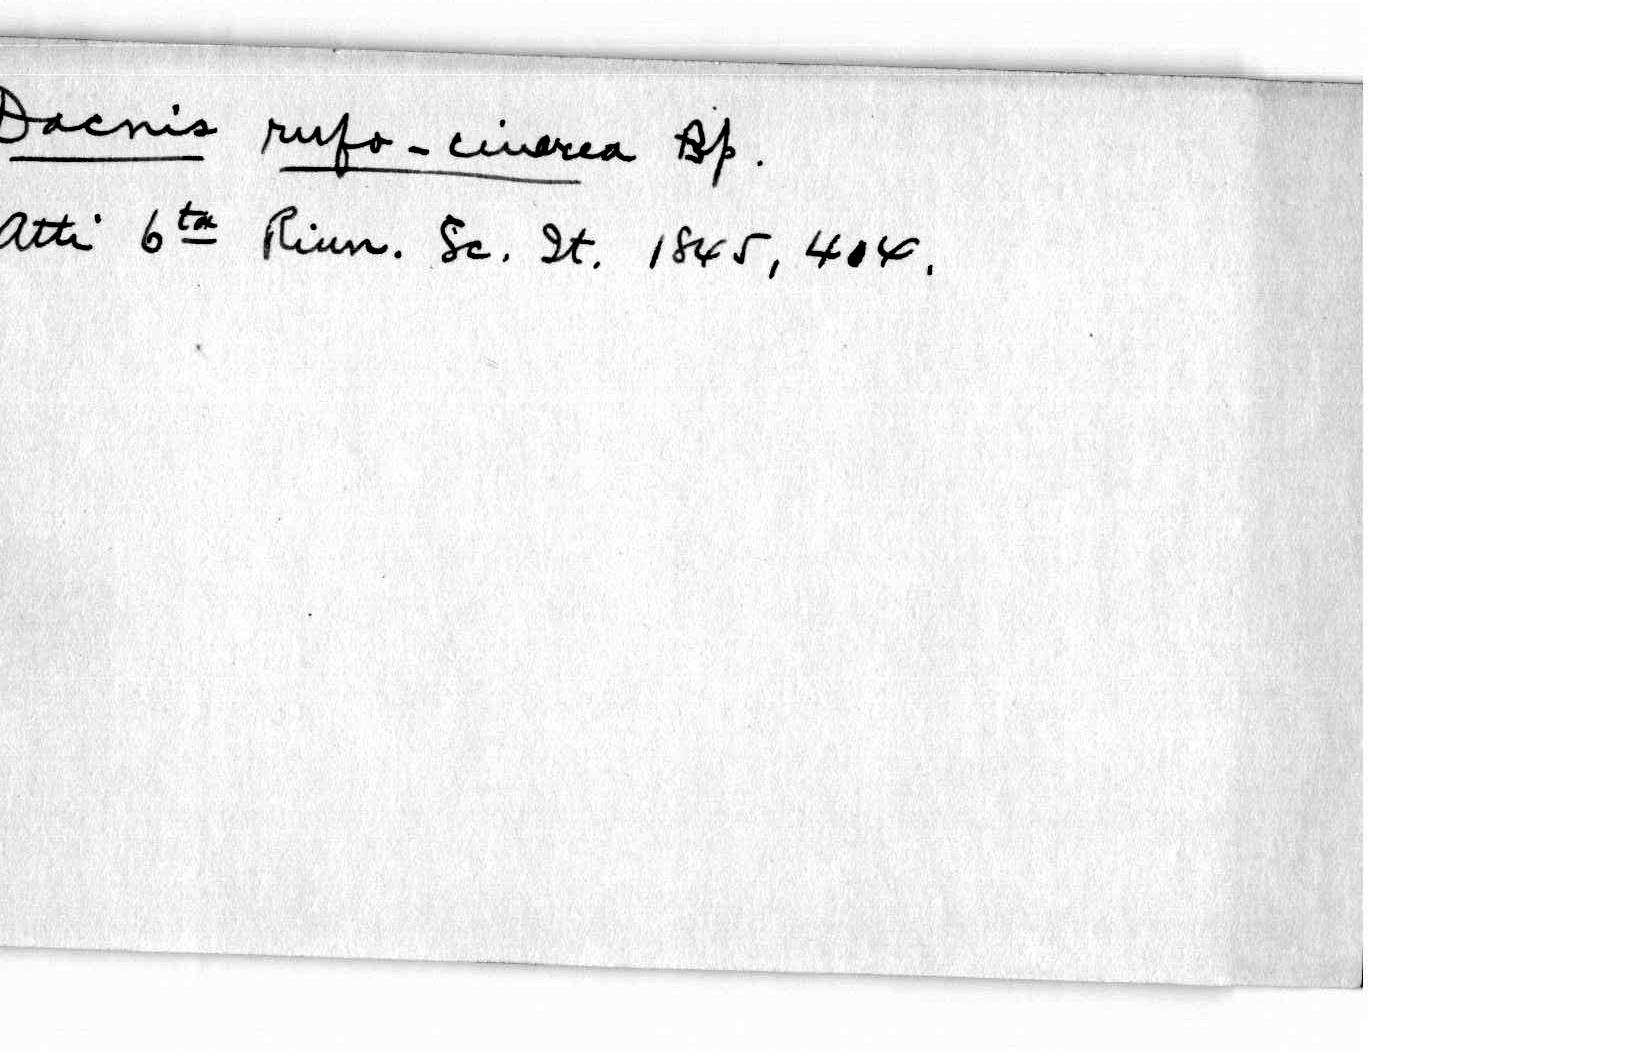 Dacnis rufo-cinerea Bp.
Atti 6ta Riun. Sc. It. 1845, 404.